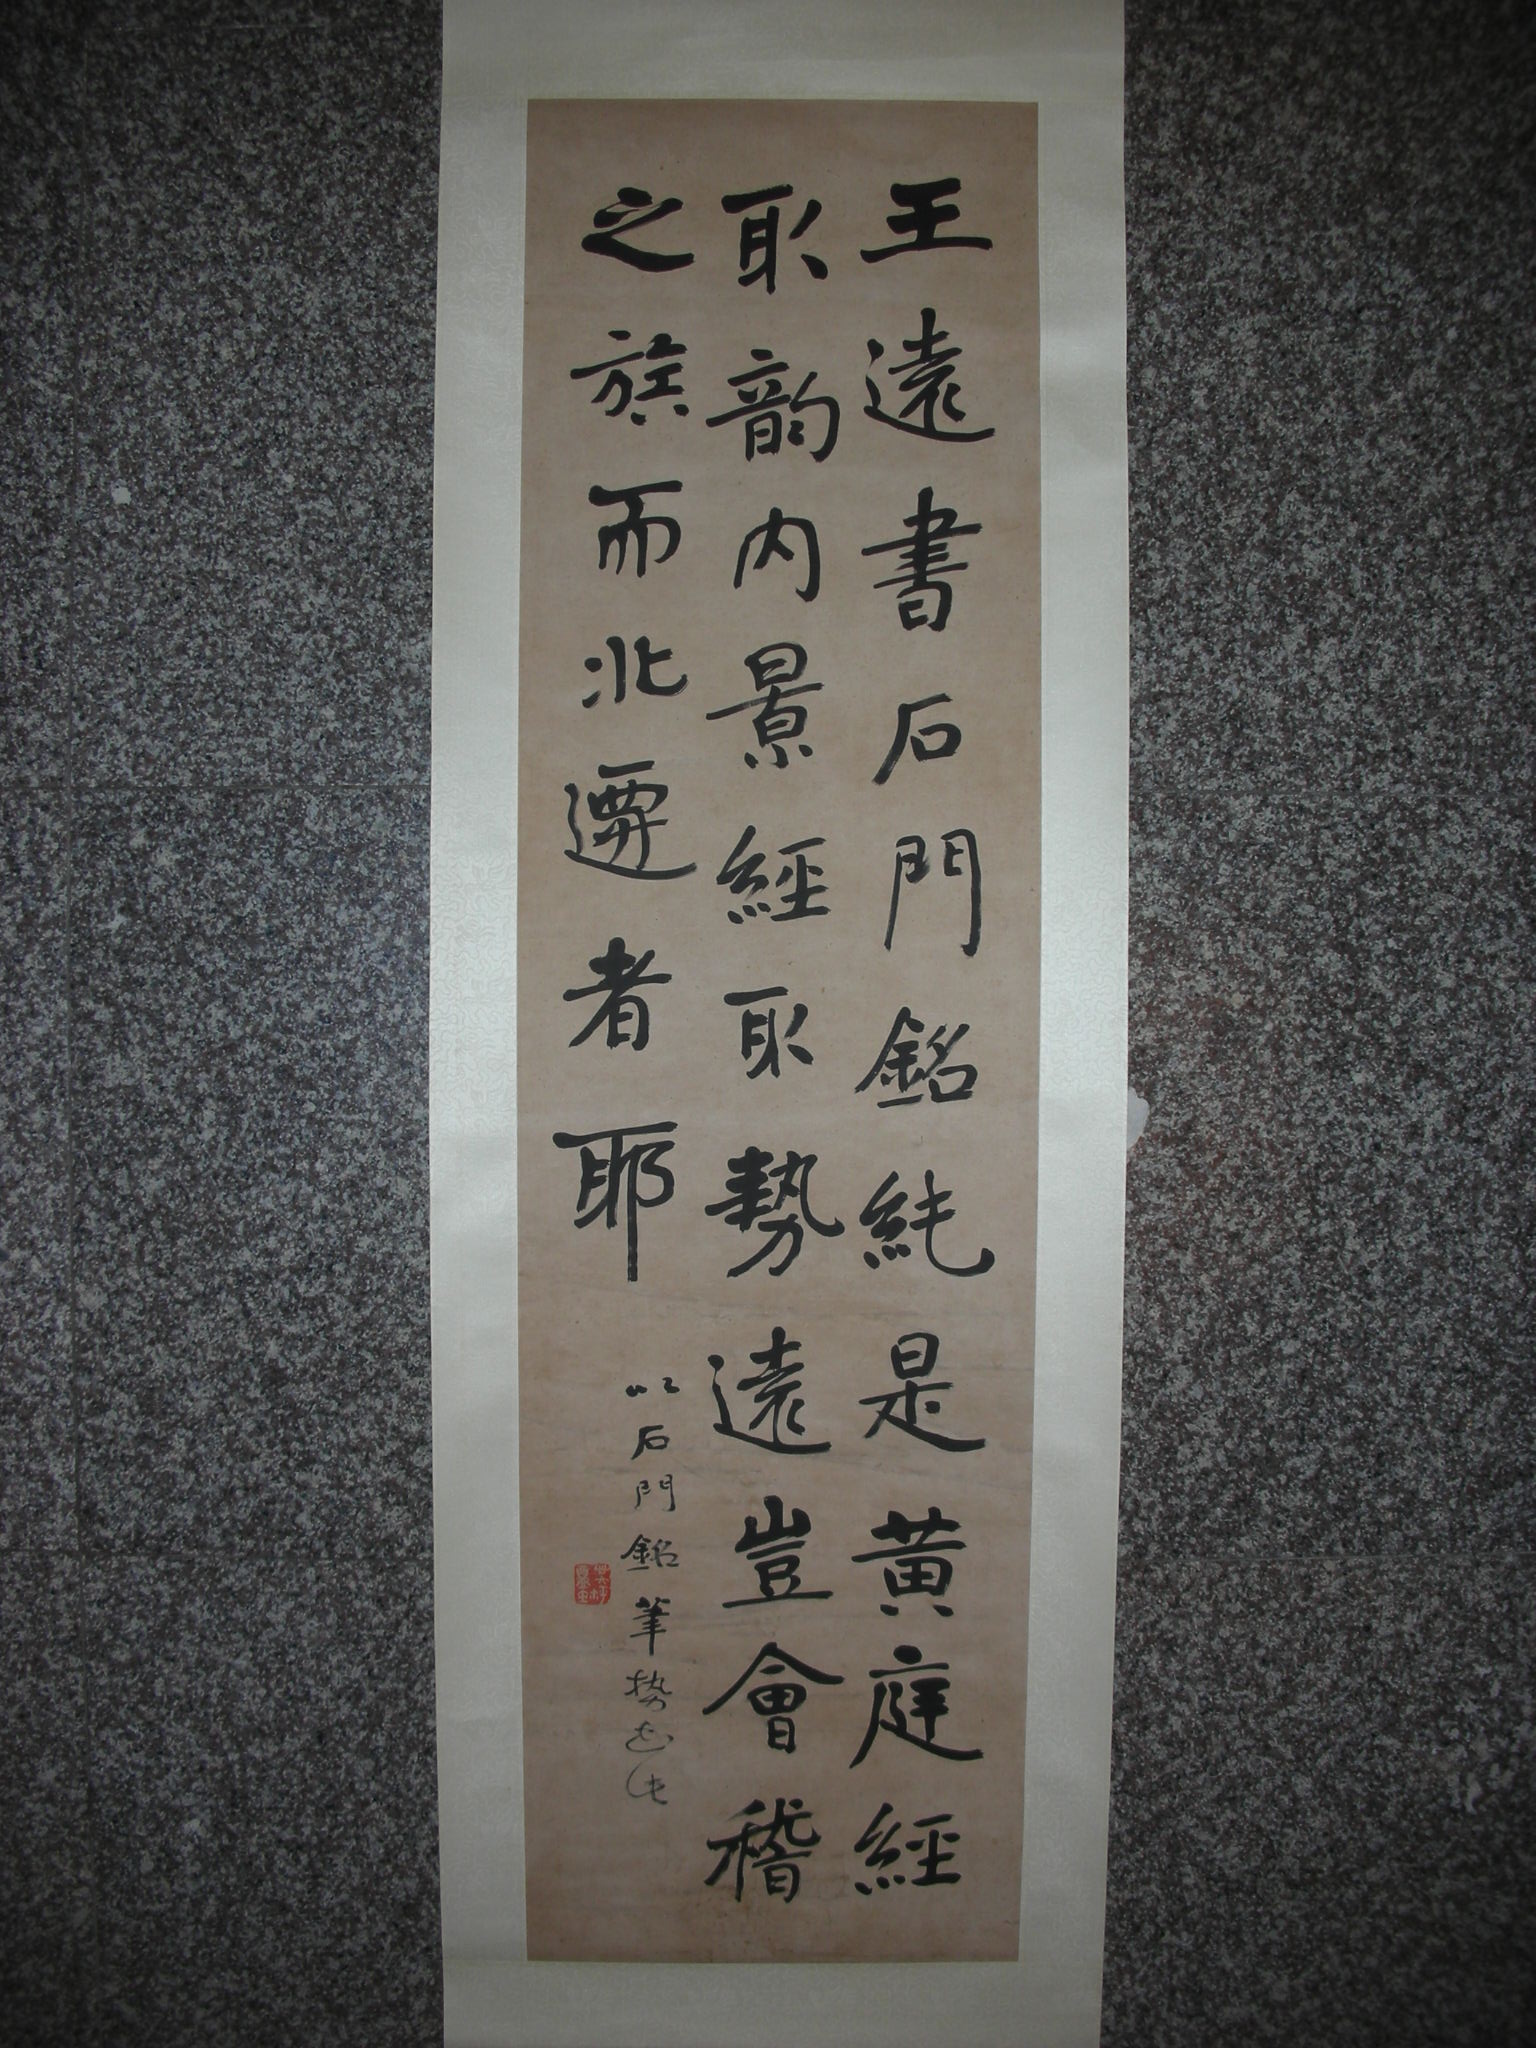 王遠書石門銘純是黃庭經
取韵內景經取勢遠豈會稽
之族而北遷者耶
以石門銘筆勢書之